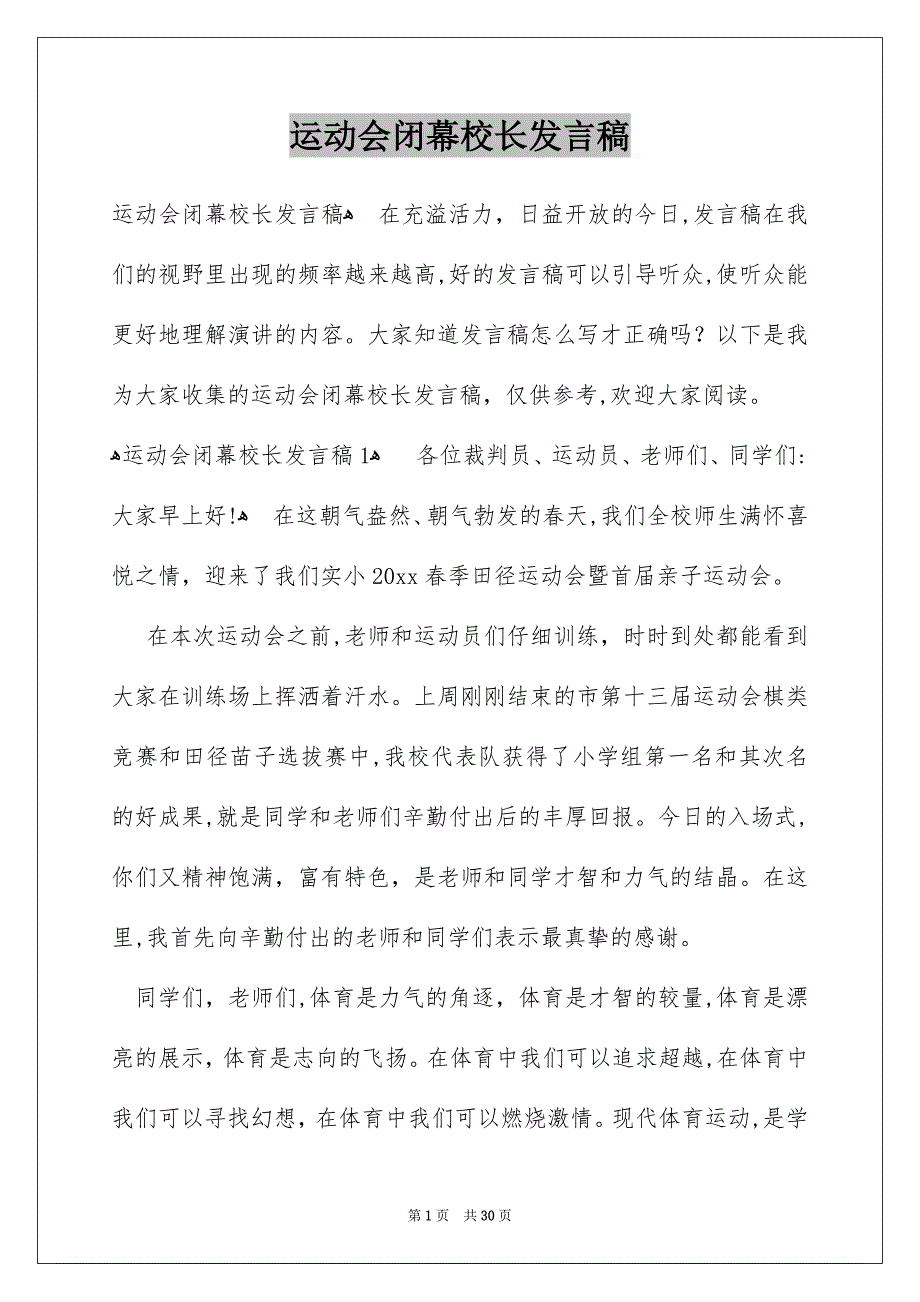 运动会闭幕校长发言稿
运动会闭幕校长发言稿ﻫ 在充溢活力，日益开放的今日,发言稿在我
们的视野里出现的频率越来越高,好的发言稿可以引导听众,使听众能
更好地理解演讲的内容。大家知道发言稿怎么写才正确吗？以下是我
为大家收集的运动会闭幕校长发言稿，仅供参考,欢迎大家阅读。
ﻫ运动会闭幕校长发言稿 1ﻫ 各位裁判员、运动员、老师们、同学们:
大家早上好!ﻫ 在这朝气盎然、朝气勃发的春天,我们全校师生满怀喜
悦之情，迎来了我们实小 20xx 春季田径运动会暨首届亲子运动会。
在本次运动会之前,老师和运动员们仔细训练，时时到处都能看到
大家在训练场上挥洒着汗水。上周刚刚结束的市第十三届运动会棋类
竞赛和田径苗子选拔赛中,我校代表队获得了小学组第一名和其次名
的好成果,就是同学和老师们辛勤付出后的丰厚回报。今日的入场式,
你们又精神饱满，富有特色，是老师和同学才智和力气的结晶。在这
里,我首先向辛勤付出的老师和同学们表示最真挚的感谢。
同学们，老师们,体育是力气的角逐，体育是才智的较量,体育是漂
亮的展示，体育是志向的飞扬。在体育中我们可以追求超越,在体育中
我们可以寻找幻想，在体育中我们可以燃烧激情。现代体育运动,是学
第 1 页 共 30 页